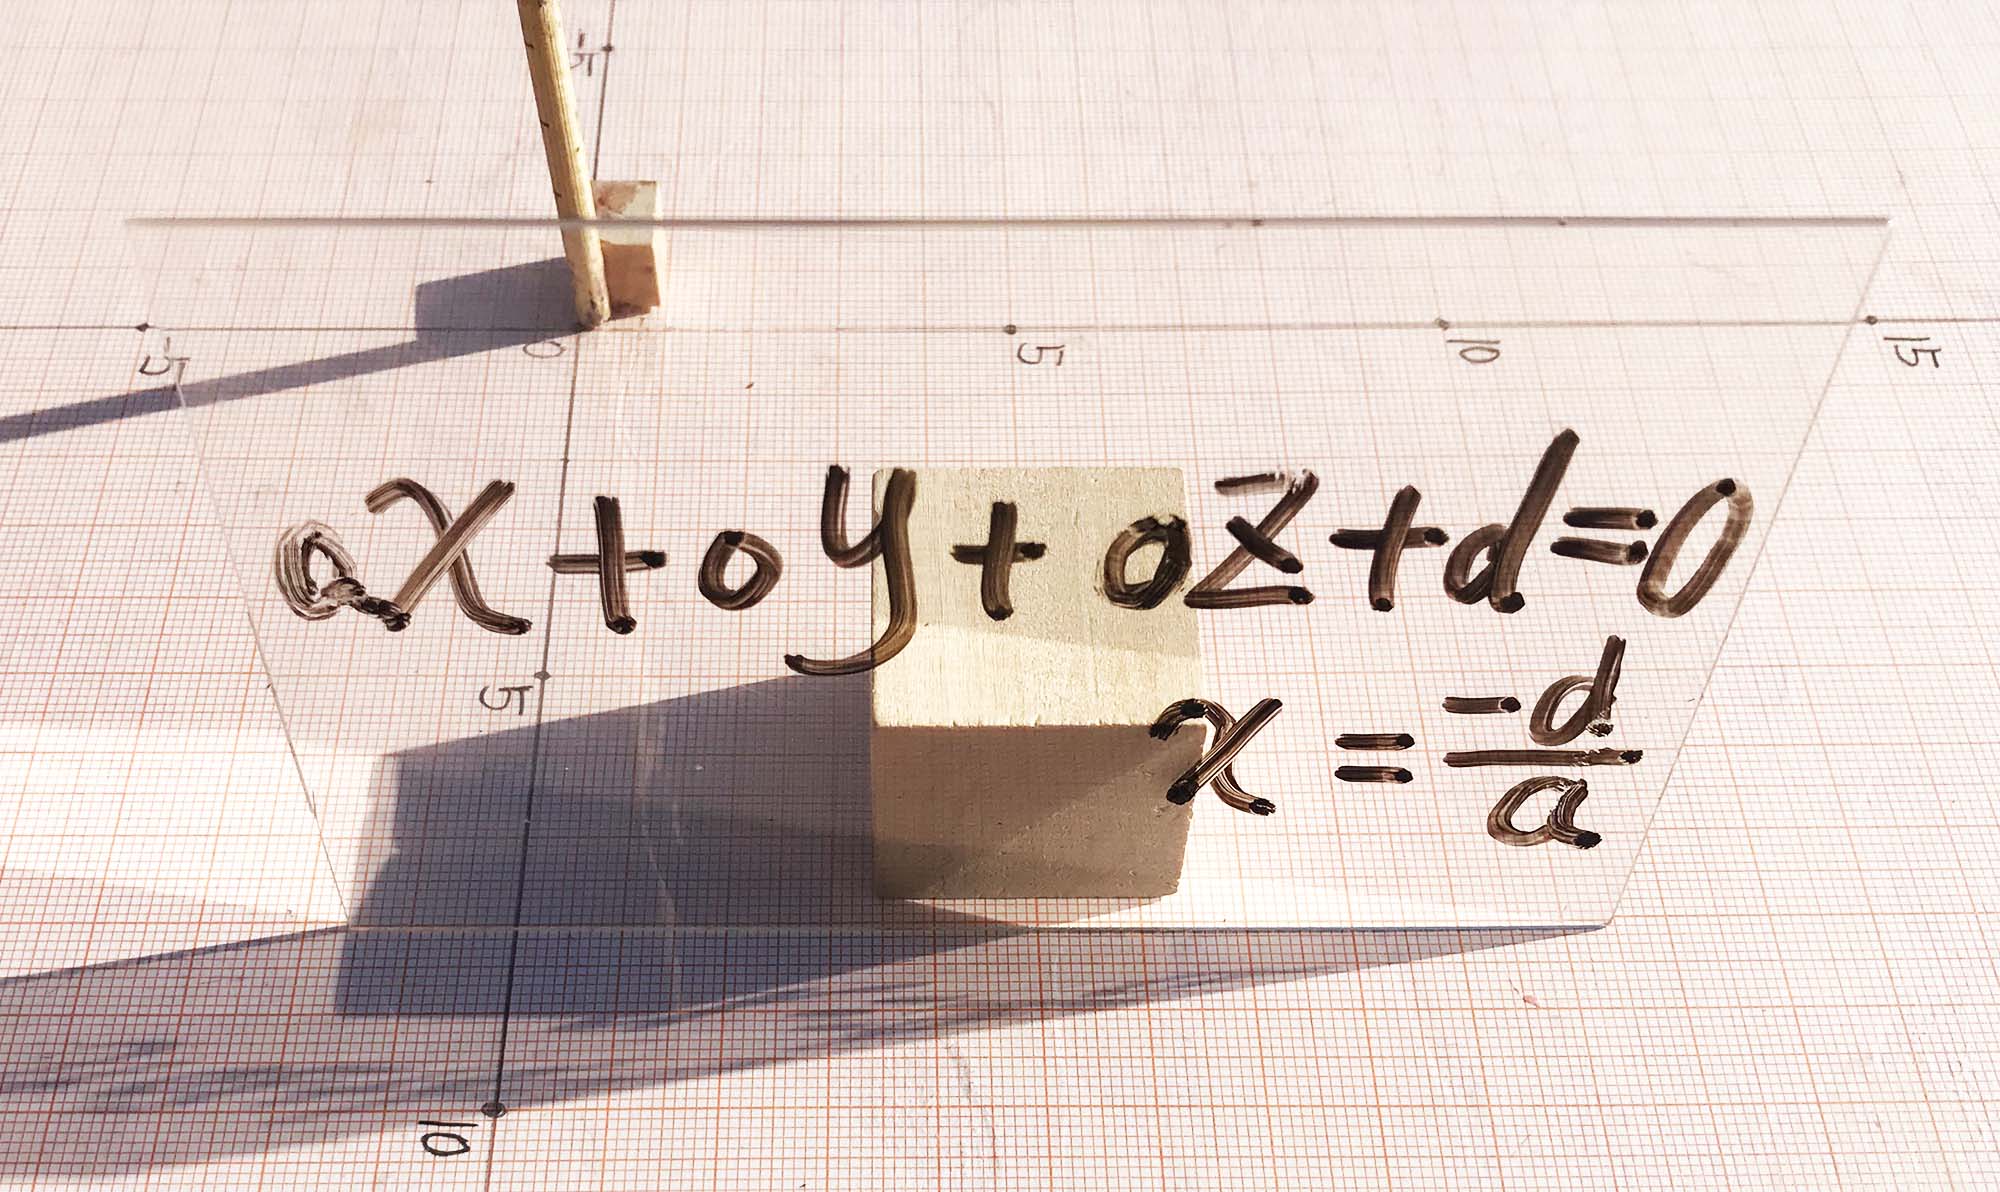 -5
-5
0
5
10
15
ax+0y+0z+d=0
5
x=-d/a
10